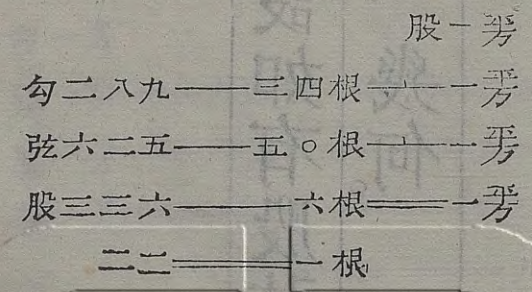 股一平方
勾二八九——三四根⊥一平方
弦六二五——五〇根⊥一平方
股三三六——一六根==一平方
二二==一根